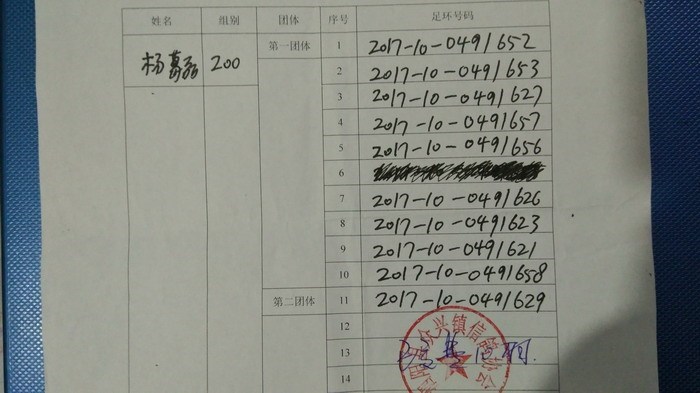 姓名 组别 团体 序号 足环号码
杨 200 第一团体 1 2017-10-0491652
2 2017-10-0491653
3 2017-10-0491627
4 2017-10-0491657
5 2017-10-0491656
6
7 2017-10-0491626
8 2017-10-0491623
9 2017-10-0491621
10 2017-10-0491658
第二团体 11 2017-10-0491629
12
13
14
兴镇信鸽协会